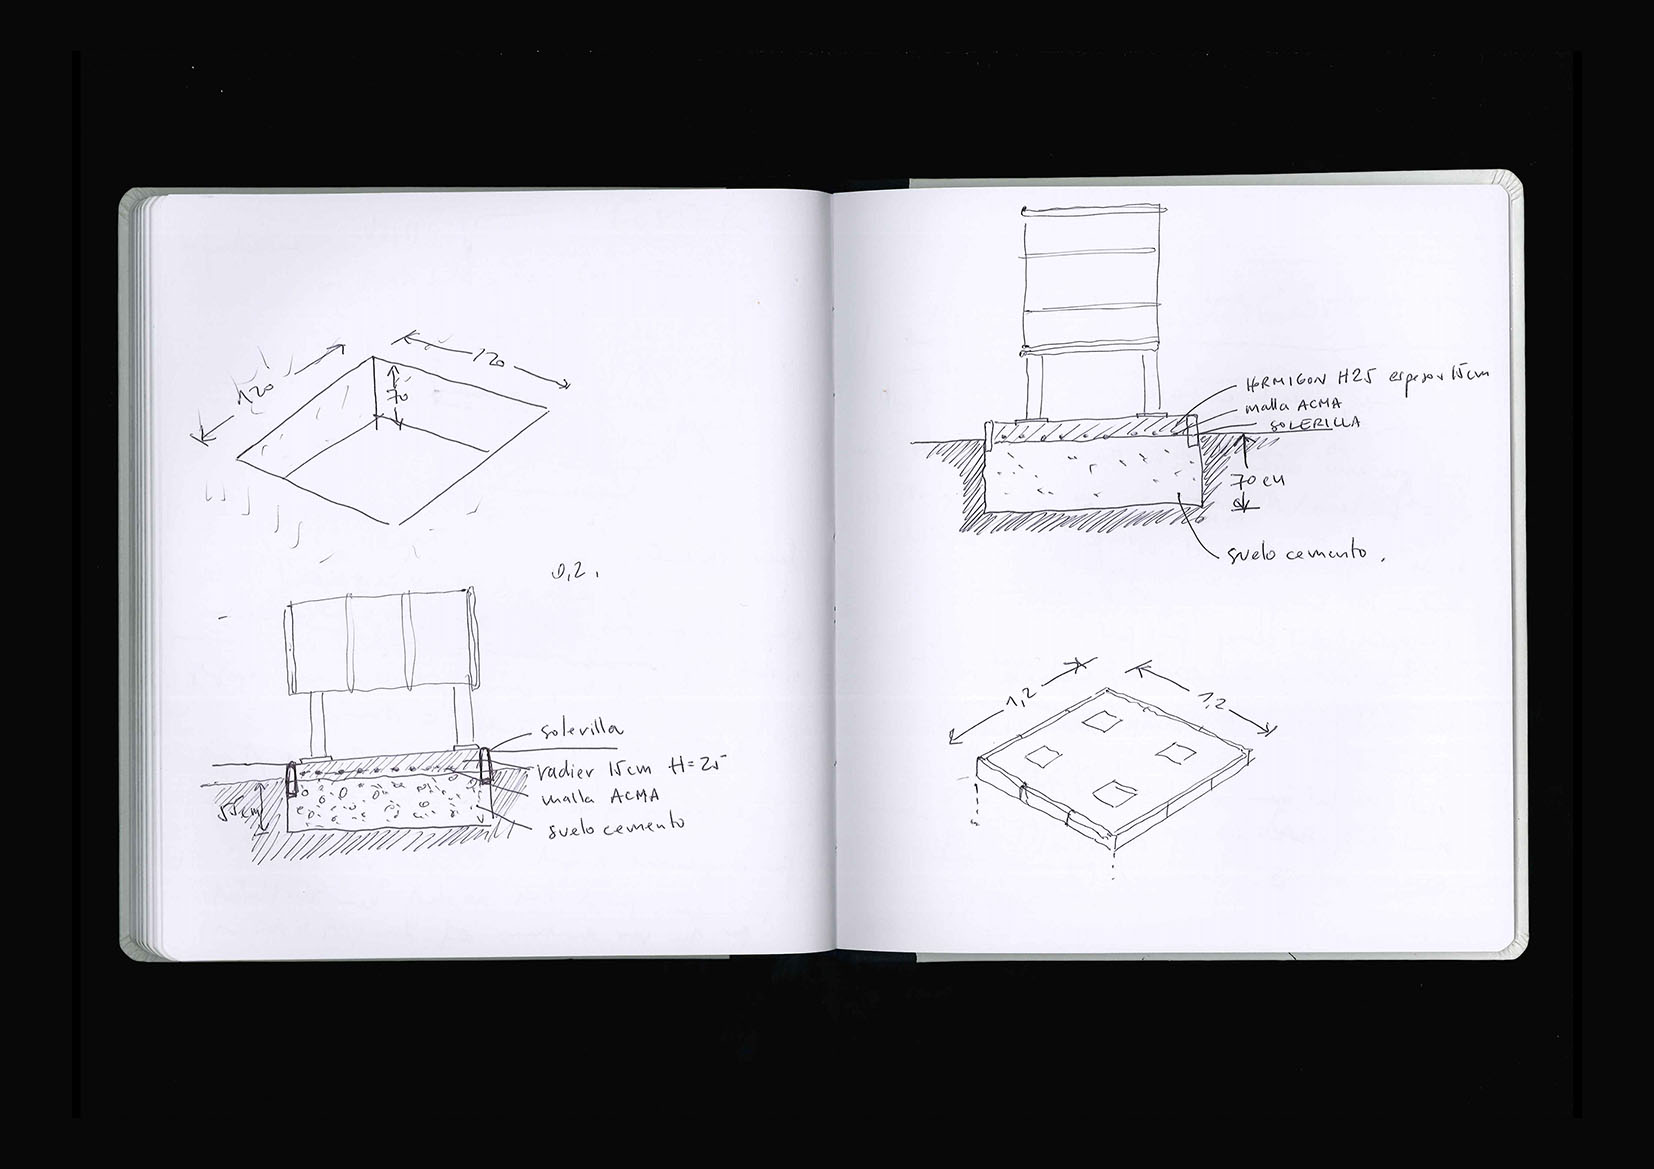 120
120
70
0,2.
solerilla
radier 15cm H=25
malla ACMA
suelo cemento
55cm
HORMIGON H25 espesor 15cm
malla ACMA
SOLERILLA
70 cm
suelo cemento.
1,2
1,2